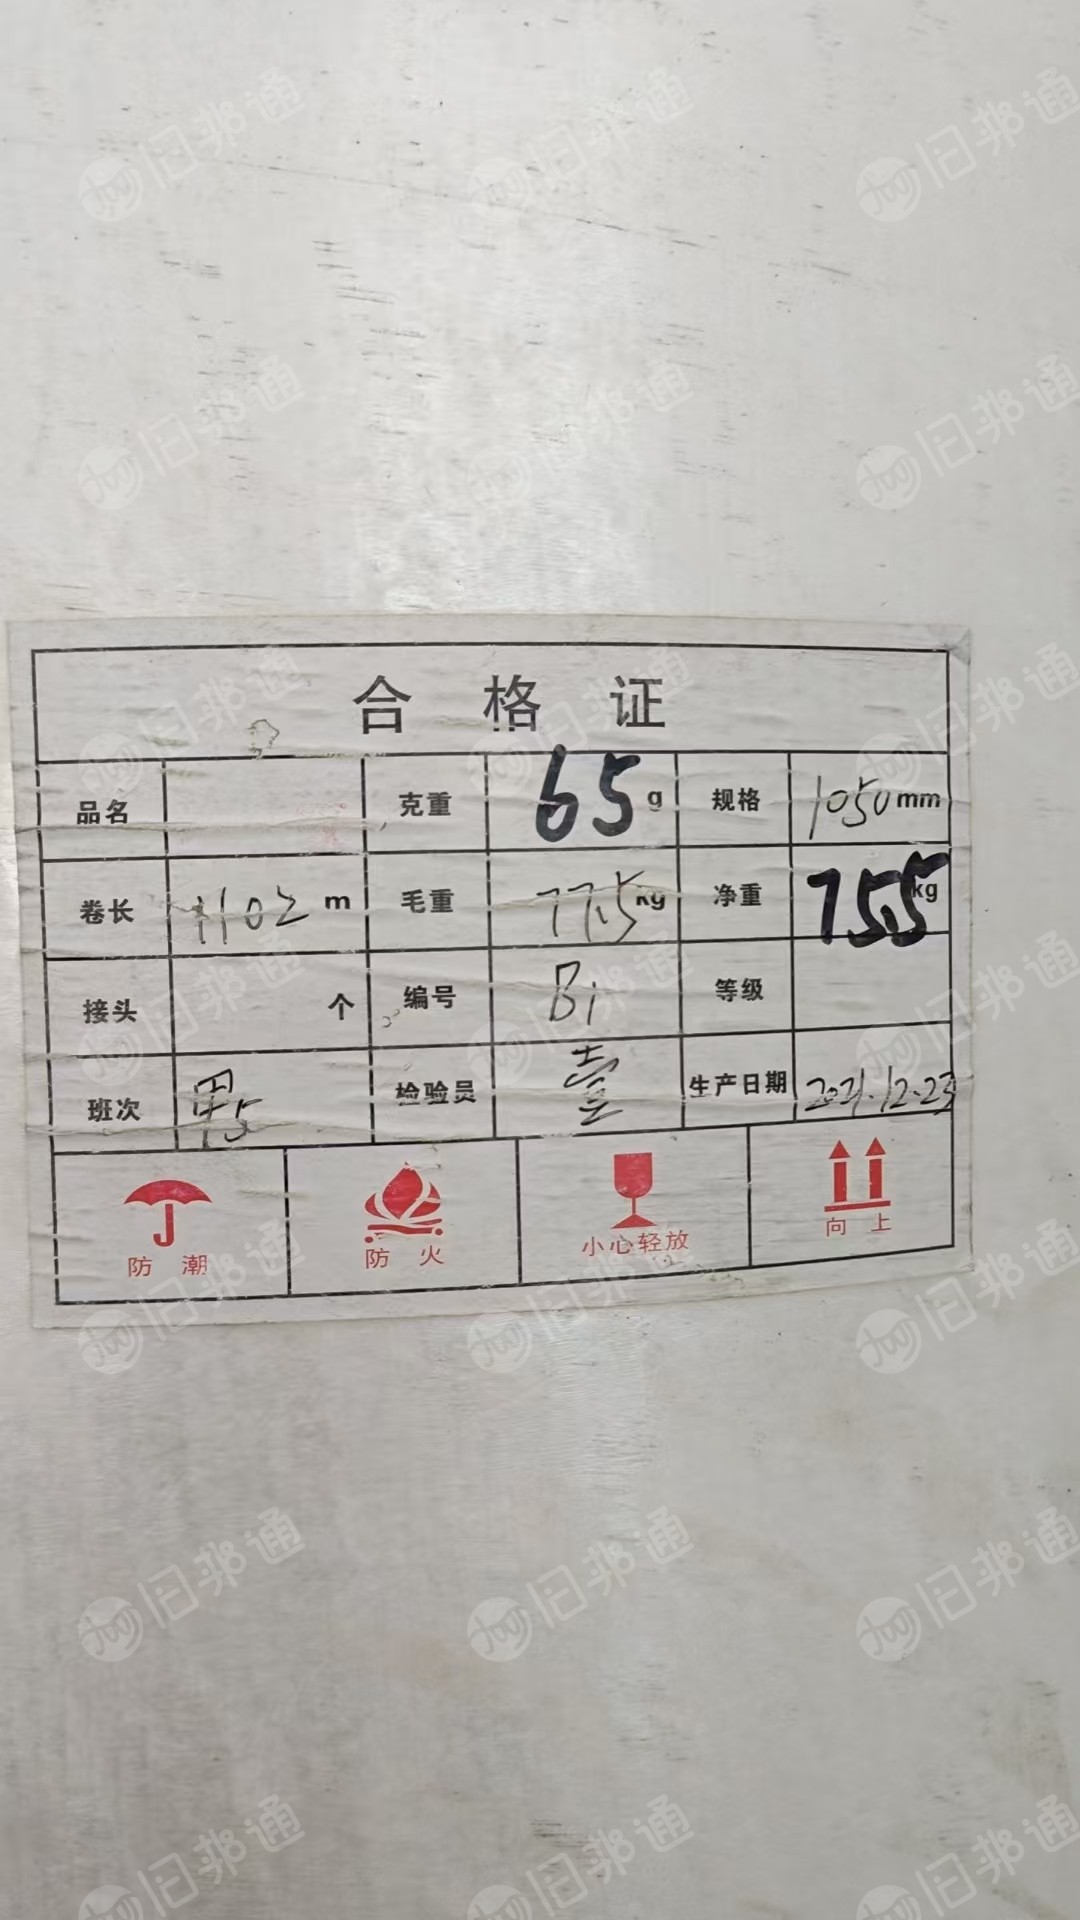 合格证
品名 克重 65 g 规格 1050 mm
卷长 1102 m 毛重 77.5 kg 净重 75.5 kg
接头 个 编号 B1 等级
班次 检验员 生产日期 2021.12.23
防潮 防火 小心轻放 向上
旧邦通